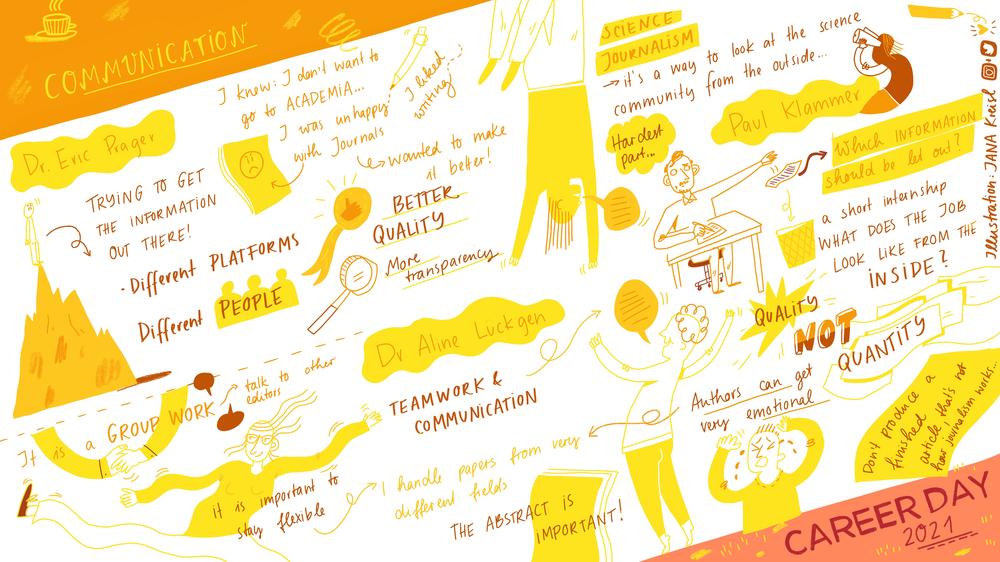 COMMUNICATION
Dr. Eric Prager
I know: I don't want to
go to ACADEMIA...
I was unhappy
with Journals
I liked
writing...
wanted to make
it better!
TRYING TO GET
THE INFORMATION
OUT THERE!
- Different PLATFORMS
Different PEOPLE
BETTER
QUALITY
More
transparency
Dr Aline Lückgen
It is a GROUP WORK
talk to other
editors
TEAMWORK &
COMMUNICATION
it is important to
stay flexible
I handle papers from very
different fields
THE ABSTRACT is
IMPORTANT!
SCIENCE
JOURNALISM
it's a way to look at the science
community from the outside...
Paul Klammer
Hardest
part...
Which INFORMATION
should be let out?
a short internship
WHAT DOES THE JOB
LOOK LIKE FROM THE
INSIDE?
QUALITY
NOT
QUANTITY
Authors can get
very emotional
Don't produce a
finished
article, that's not
how journalism works...
CAREER DAY
2021
Illustration: JANA Kreisl